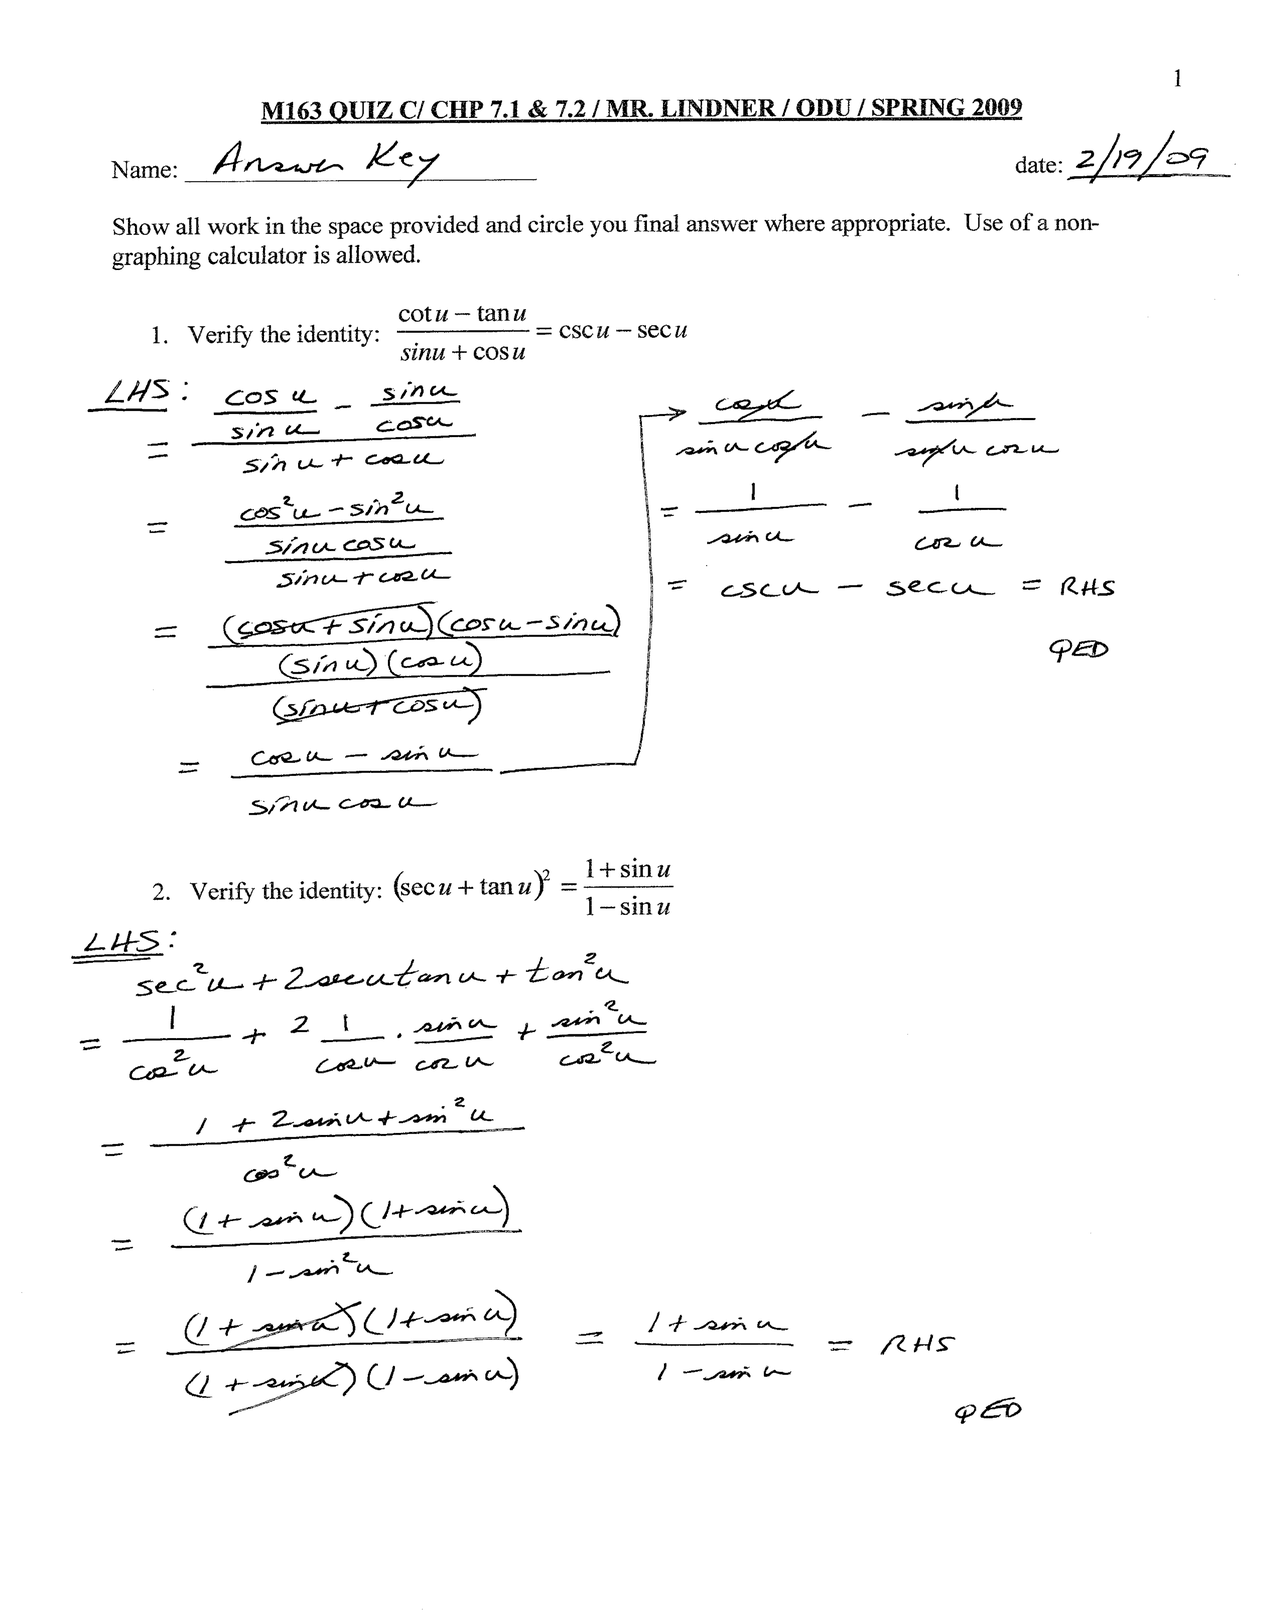 1
M163 QUIZ C/ CHP 7.1 & 7.2 / MR. LINDNER / ODU / SPRING 2009
Name: Answer Key date: 2/19/09
Show all work in the space provided and circle you final answer where appropriate. Use of a non-
graphing calculator is allowed.
1. Verify the identity: (cot u − tan u)/(sin u + cos u) = csc u − sec u
LHS:
= (cos u/sin u − sin u/cos u)/(sin u + cos u)
= ((cos²u − sin²u)/(sin u cos u))/(sin u + cos u)
= ((cos u + sin u)(cos u − sin u)/((sin u)(cos u)))/(sin u + cos u)
= (cos u − sin u)/(sin u cos u)
→ cos u/(sin u cos u) − sin u/(sin u cos u)
= 1/sin u − 1/cos u
= csc u − sec u = RHS
QED
2. Verify the identity: (sec u + tan u)² = (1 + sin u)/(1 − sin u)
LHS:
sec²u + 2 sec u tan u + tan²u
= 1/cos²u + 2 1/cos u · sin u/cos u + sin²u/cos²u
= (1 + 2 sin u + sin²u)/cos²u
= (1 + sin u)(1 + sin u)/(1 − sin²u)
= (1 + sin u)(1 + sin u)/((1 + sin u)(1 − sin u)) = (1 + sin u)/(1 − sin u) = RHS
QED